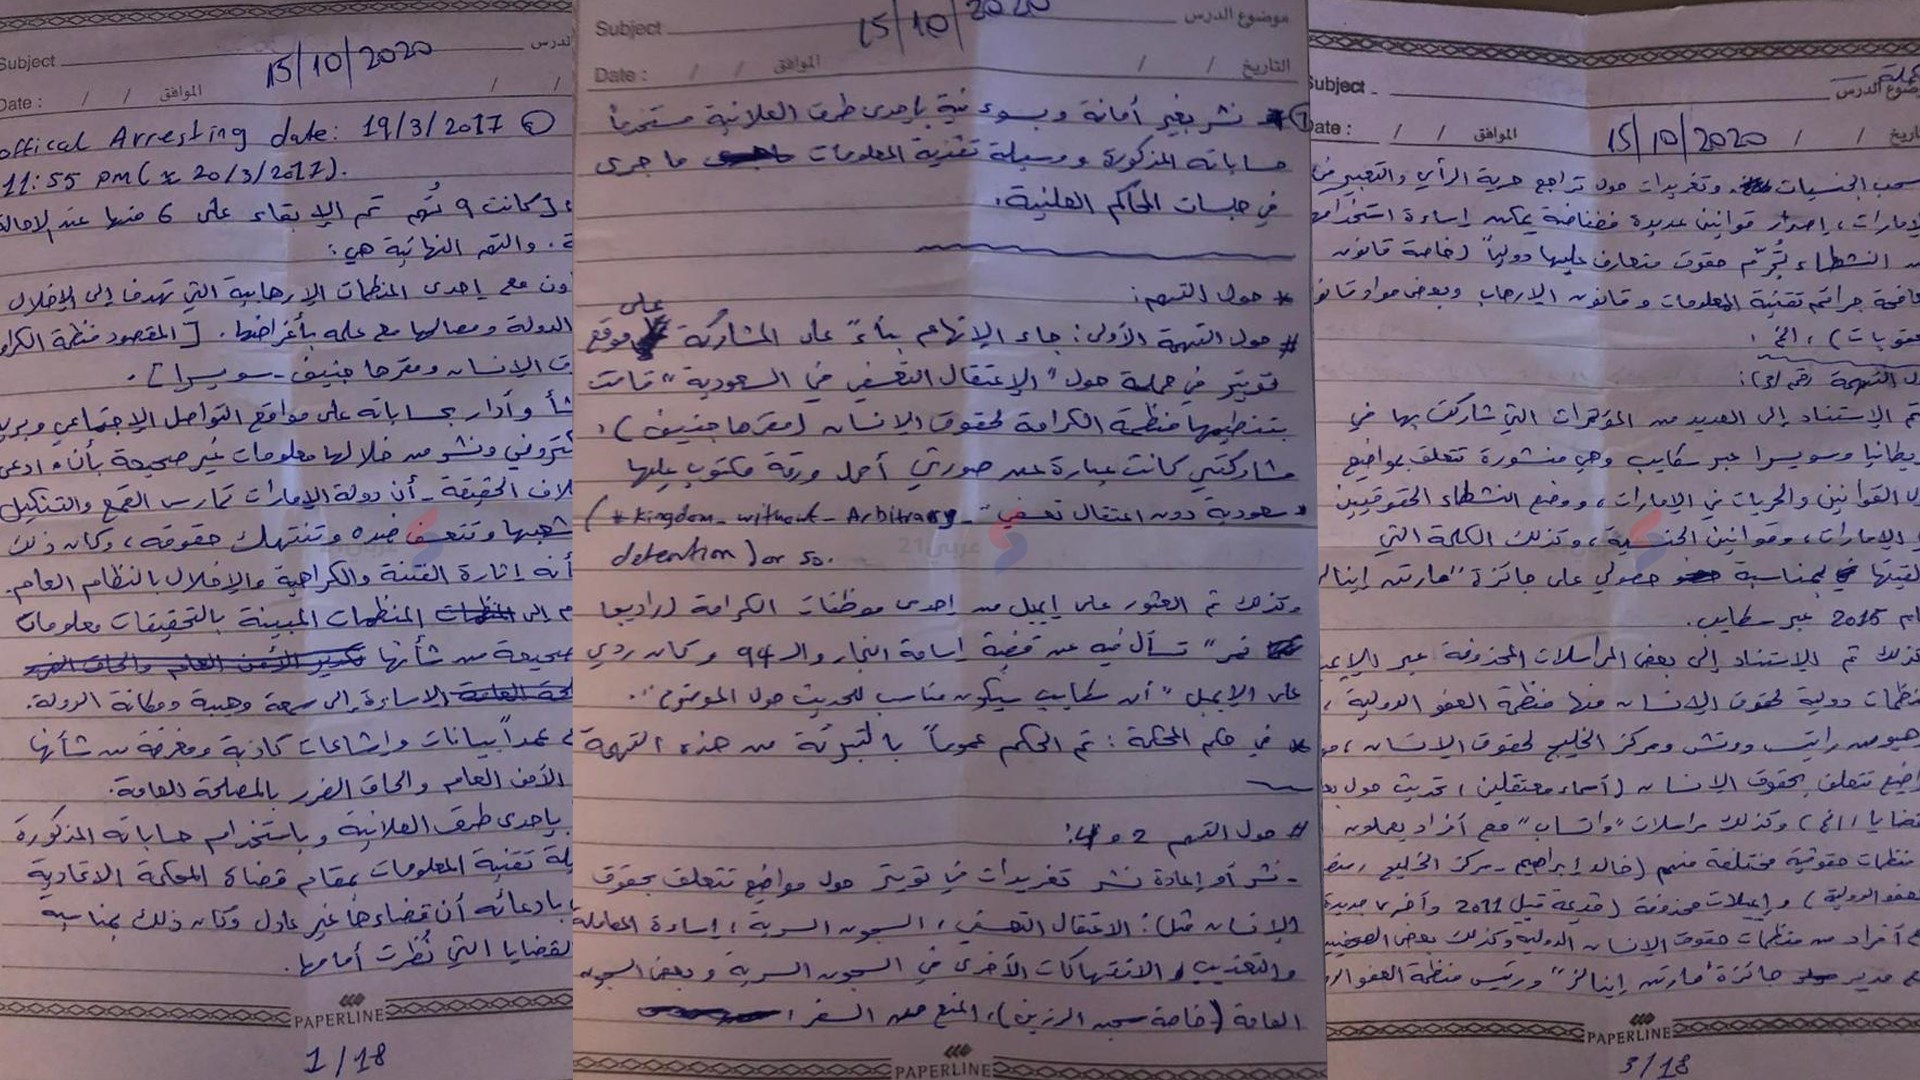 Subject
درس
15/10/2020
Date : / / الموافق / /
offical Arresting date: 19/3/2017
11:55 pm ( 20/3/2017).
كانت 9 تُهم تم الإبقاء على 6 منها عند الإحالة
والتهم النهائية هي:
ون مع إحدى المنظمات الإرهابية التي تهدف إلى الإخلال
الدولة ومصالحها مع علمه بأغراضها. [المقصود منظمة الكرا
الإنسان ومقرها جنيف - سويسرا].
شأ وأدار بحساباته على مواقع التواصل الإجتماعي وبريد
كتروني ونشر من خلالها معلومات غير صحيحة بأن ادعى
لاف الحقيقة - أن دولة الإمارات تمارس القمع والتنكيل
شعبها وتتعسف ضده وتنتهك حقوقه، وكان ذلك
أنه إثارة الفتنة والكراهية والإخلال بالنظام العام.
م إلى المنظمات المبينة بالتحقيقات معلومات
صحيحة من شأنها
الإساءة إلى سمعة وهيبة ومكانة الدولة.
عمداً بيانات وإشاعات كاذبة ومغرضة من شأنها
الأمن العام والحاق الضرر بالمصلحة العامة.
بإحدى طرق العلانية وباستخدام حساباته المذكورة
يلة تقنية المعلومات بمقام قضاة المحكمة الاتحادية
بادعائه أن قضاءها غير عادل وكان ذلك بمناسبة
لقضايا التي نُظرت أمامها.
PAPERLINE
1/18
Subject موضوع الدرس
15/10/2020
Date : / / الموافق / / التاريخ
نشر بغير أمانة وبسوء نية بإحدى طرق العلانية مستخدماً
حساباته المذكورة ووسيلة تقنية المعلومات ما جرى
في جلسات المحاكم العلنية.
* حول التهم:
# حول التهمة الأولى: جاء الإتهام بناءً على المشاركة على موقع
تويتر في حملة حول "الإعتقال التعسفي في السعودية" قامت
بتنظيمها منظمة الكرامة لحقوق الإنسان (مقرها جنيف).
مشاركتي كانت عبارة عن صورتي أحمل ورقة مكتوب عليها
"سعودية دون اعتقال تعسفي" (#Kingdom_without_Arbitrary_
detention) or so.
وكذلك تم العثور على إيميل من إحدى موظفات الكرامة (راديو
" تسأل فيه عن قضية أسامة النجار والـ 94 وكان ردي
على الإيميل "أن سكايب سيكون مناسب للحديث حول الموضوع".
* في حكم المحكمة: تم الحكم عموماً بالتبرئة من هذه التهمة
# حول التهم 2 و 4:
- نشر أو إعادة نشر تغريدات في تويتر حول مواضيع تتعلق بحقوق
الإنسان مثل: الاعتقال التعسفي، السجون السرية، إساءة المعاملة
والتعذيب والانتهاكات الأخرى في السجون السرية وبعض السجون
العامة (خاصة سجن الرزين)، المنع من السفر،
عربي21
PAPERLINE
Subject موضوع الدرس
Date : / / الموافق 15/10/2020 / / تاريخ
سحب الجنسيات وتغريدات حول تراجع حرية الرأي والتعبير في
لإمارات، إصدار قوانين عديدة فضفاضة يمكن إساءة استخدامها
النشطاء تُجرّم حقوق متعارف عليها دولياً (خاصة قانون
افحة جرائم تقنية المعلومات وقانون الإرهاب وبعض مواد قانو
عقوبات)، الخ.
ل التهمة رقم
تم الإستناد إلى العديد من المؤتمرات التي شاركت بها في
يطانيا وسويسرا عبر سكايب وهي منشورة تتعلق بمواضيع
القوانين والحريات في الإمارات، ووضع النشطاء الحقوقيين
الإمارات، وقوانين الجنسية، وكذلك الكلمة التي
لقيتها بمناسبة حصولي على جائزة "مارتن إينالز
ام 2015 عبر سكايب.
كذلك تم الإستناد إلى بعض المراسلات المحذوفة عبر الإيميـ
نظمات دولية لحقوق الإنسان منها منظمة العفو الدولية،
هيومن رايتس ووتش ومركز الخليج لحقوق الإنسان،
اضيع تتعلق بحقوق الإنسان (أسماء معتقلين، تحديث حول
ضايا، الخ) وكذلك مراسلات "واتساب" مع أفراد يعملون
منظمات حقوقية مختلفة منهم (خالد إبراهيم - مركز الخليج،
لعفو الدولية) وإيميلات محذوفة (قديمة قبل 2011 وأخرى جديدة
أفراد من منظمات حقوق الإنسان الدولية وكذلك بعض الصحفيين
مدير جائزة "مارتن إينالز" ورئيس منظمة العفو
PAPERLINE
3/18